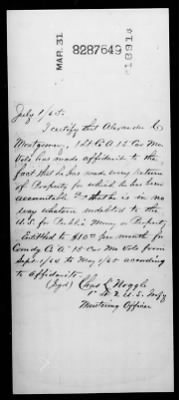 MAR. 31
8287649
1891
July 1/65.
I certify that Alexander C
Montgomery, 1 Lt Co A 15 Cav Mo
Vols has made affidavit to the
fact that he has made every return
of Property for which he has been
accountable & that he is in no
way whatever indebted to the
U.S. for Public Money or Property,
Entitled to $10.00 per month for
Comdg Co A 15 Cav Mo Vols from
Sept. 1/64 to May 1/65 according
to affidavits.
(Sgd) Chas L Noggle
1" Lt 2 U.S. Inf'y
Mustering Officer